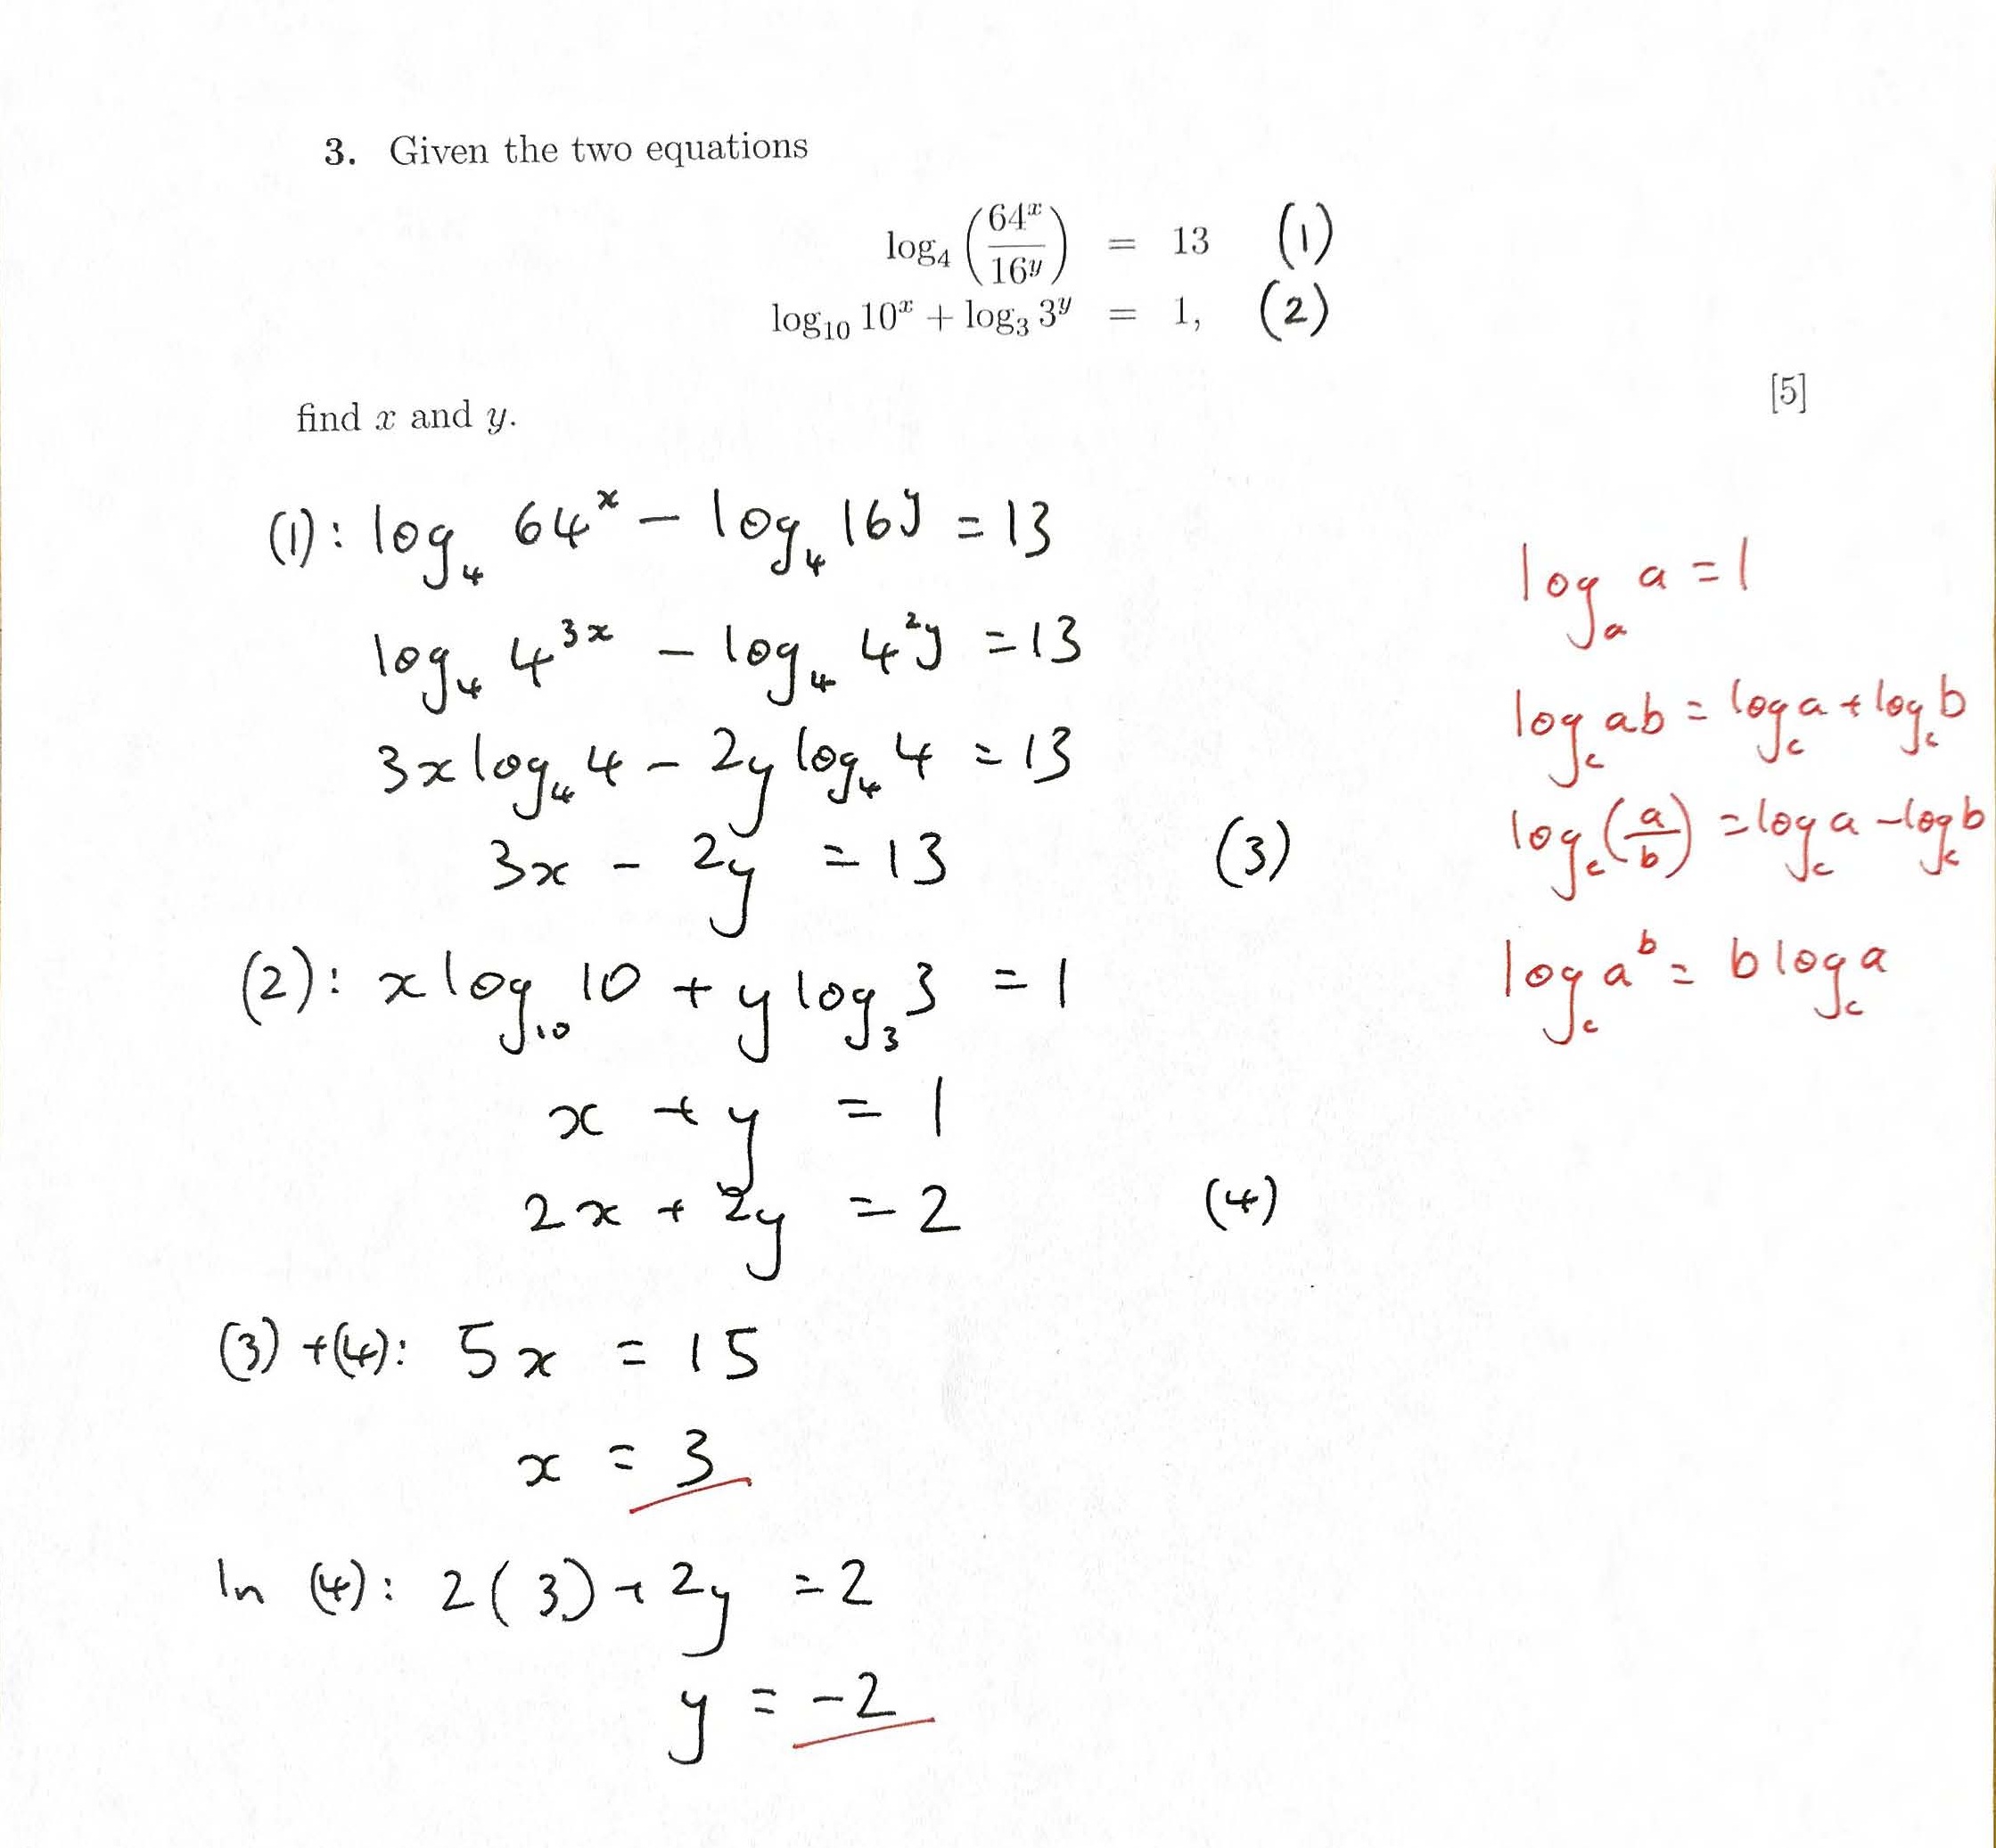 3. Given the two equations
log₄ (64ˣ/16ʸ) = 13 (1)
log₁₀ 10ˣ + log₃ 3ʸ = 1, (2)
[5]
find x and y.
(1): log₄ 64ˣ − log₄ 16ʸ = 13
log₄ 4³ˣ − log₄ 4²ʸ = 13
3x log₄ 4 − 2y log₄ 4 = 13
3x − 2y = 13 (3)
(2): x log₁₀ 10 + y log₃ 3 = 1
x + y = 1
2x + 2y = 2 (4)
(3) + (4): 5x = 15
x = 3
In (4): 2(3) + 2y = 2
y = −2
logₐ a = 1
log_c ab = log_c a + log_c b
log_c (a/b) = log_c a − log_c b
log_c aᵇ = b log_c a